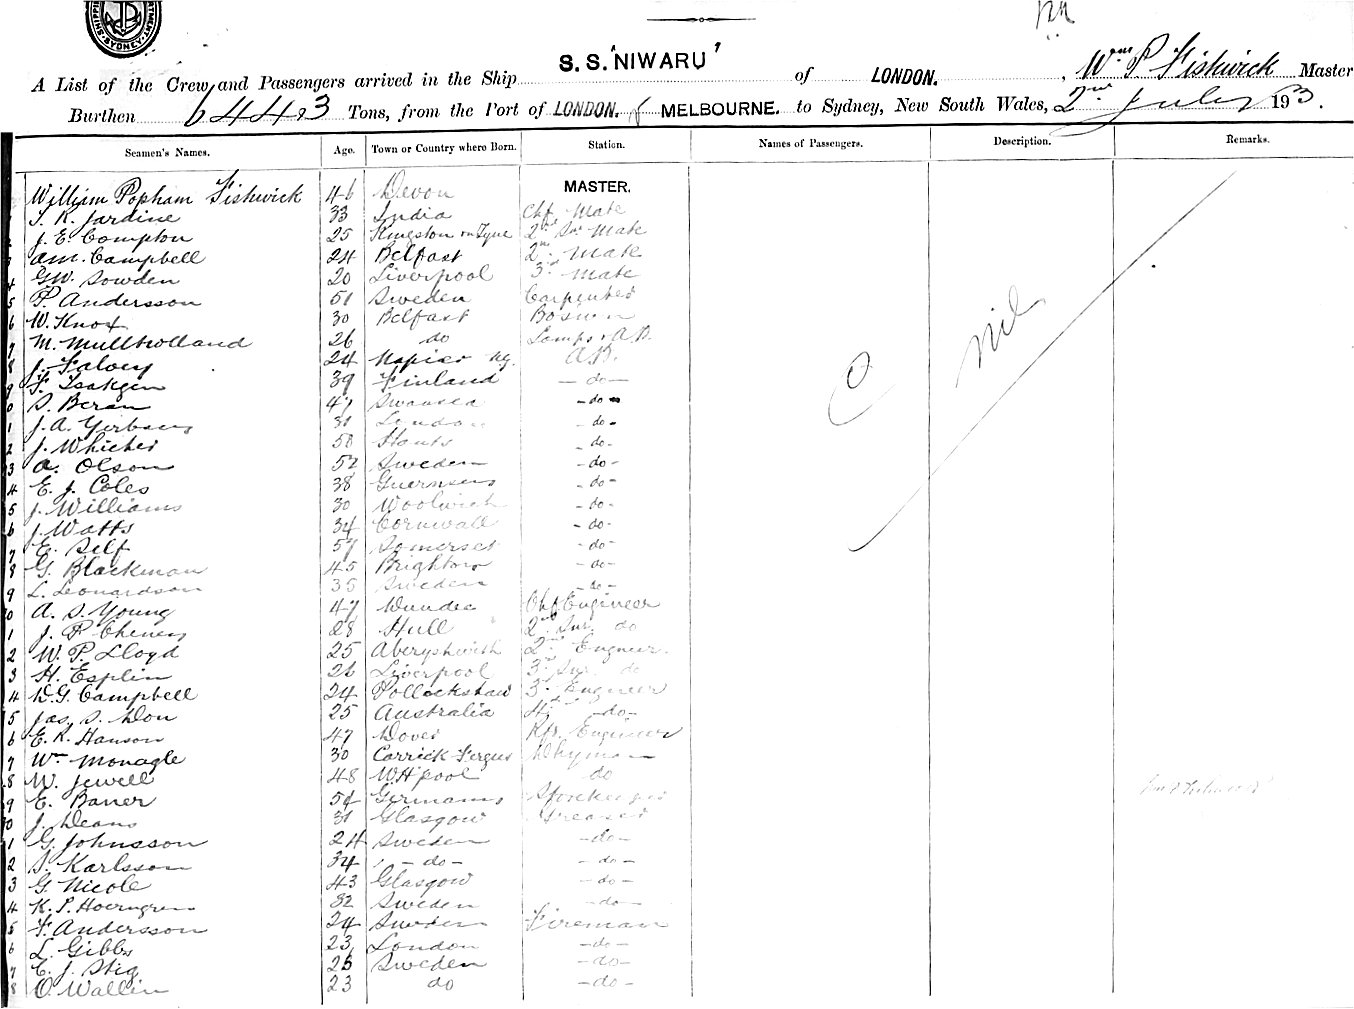 S.S. 'NIWARU'
A List of the Crew and Passengers arrived in the Ship of LONDON. , Wm P Fishwick Master
Burthen 6443 Tons, from the Port of LONDON. & MELBOURNE. to Sydney, New South Wales, 2nd July 193.
Seamen's Names. Age. Town or Country where Born. Station. Names of Passengers. Description. Remarks.
William Popham Fishwick 46 Devon MASTER.
1 S. R. Jardine 33 India Chf Mate
2 J. E. Compton 25 Kingston on Tyne 2nd Snr Mate
3 Am. Campbell 24 Belfast 2nd Mate
4 GW. Sowden 20 Liverpool 3rd Mate
5 P. Andersson 51 Sweden Carpenter
6 W. Knox 30 Belfast Bosun
7 M. Mullholland 26 do Lamps & AB.
8 J. Falvey 24 Napier AB.
9 F. Isakgen 39 Finland - do -
0 S. Beran 47 Swansea - do -
1 J. A. 31 London - do -
2 J. Whicher 58 Hants - do -
3 A. Olson 52 Sweden - do -
4 E. J. Coles 38 Guernsey - do -
5 J. Williams 30 Woolwich - do -
6 J. Watts 34 Cornwall - do -
7 E. Self 57 Somerset - do -
8 G. Blackman 45 Brighton - do -
9 L. Leonardson 35 Sweden - do -
0 A. S. Young 47 Dundee Chf Engineer
1 J. P Cheney 28 Hull 2nd Snr. do
2 W. P. Lloyd 25 Aberystwith 2nd Engineer.
3 H. Esplin 26 Liverpool 3rd Snr. do
4 D. G. Campbell 24 Pollockshaw 3rd Engineer
5 Jas. S. Don 25 Australia 4th - do -
6 E. R. Hanson 47 Dover Rfr. Engineer
7 Wm Monagle 30 Carrick Fergus Dkyman
8 W. Jewell 48 WHpool do
9 E. Baner 54 Germany Storekeeper
0 J. Deans 31 Glasgow Greaser
1 G. Johnsson 24 Sweden - do -
2 S. Karlsson 34 - do - - do -
3 G. Nicole 43 Glasgow - do -
4 K. P. Hoerngren 32 Sweden - do -
5 F. Andersson 24 Sweden Fireman
6 L. Gibbs 23 London - do -
7 E. J. Stig 25 Sweden - do -
8 O. Wallin 23 do - do -
nil